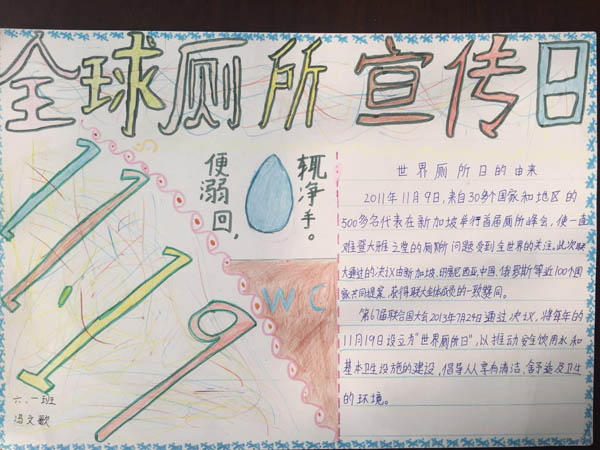 全球厕所宣传日
11.19
便溺回，
辄净手。
WC
六.一班
冯文歌
世界厕所日的由来
2011年11月9日,来自30多个国家和地区的
500多名代表在新加坡举行首届厕所峰会,使一直
难登大雅之堂的厕所问题受到全世界的关注。此次联
大通过的决议由新加坡,印度尼西亚,中国,俄罗斯等近100个国
家共同提案,获得联大全体成员的一致赞同。
第67届联合国大会2013年7月24日通过决议,将每年的
11月19日设立为"世界厕所日",以推动安全饮用水和
基本卫生设施的建设,倡导人人享有清洁、舒适及卫生
的环境。